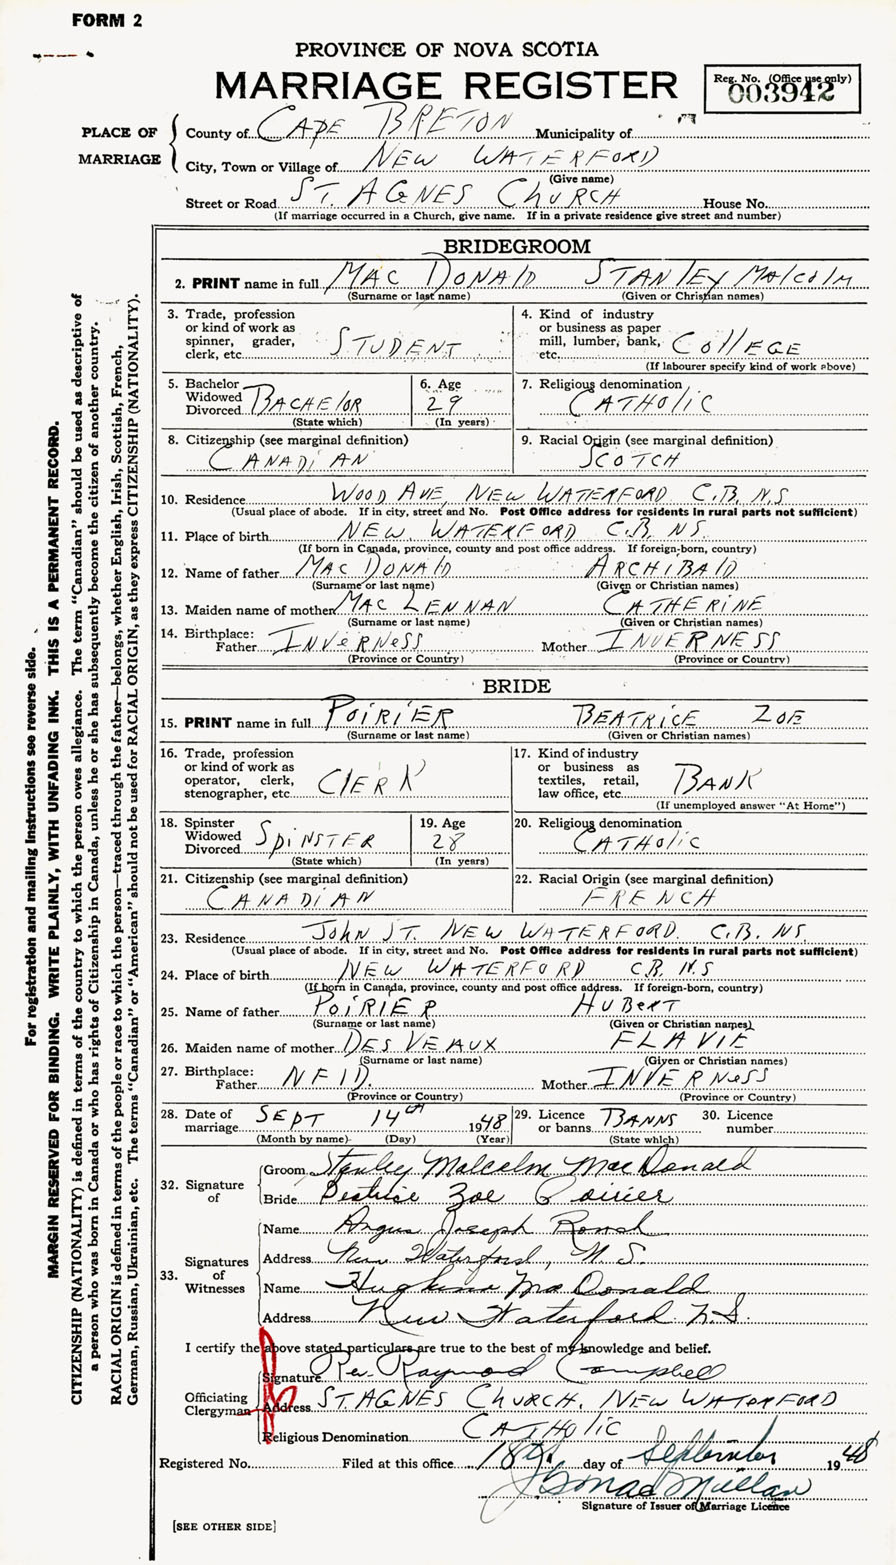 FORM 2
PROVINCE OF NOVA SCOTIA
MARRIAGE REGISTER
Reg. No. (Office use only)
003942
PLACE OF MARRIAGE
County of CAPE BRETON Municipality of
City, Town or Village of NEW WATERFORD
(Give name)
Street or Road ST. AGNES CHURCH House No.
(If marriage occurred in a Church, give name. If in a private residence give street and number)
BRIDEGROOM
2. PRINT name in full MAC DONALD STANLEY MALCOLM
(Surname or last name) (Given or Christian names)
3. Trade, profession or kind of work as spinner, grader, clerk, etc. STUDENT
4. Kind of industry or business as paper mill, lumber, bank, etc. COLLEGE
(If labourer specify kind of work above)
5. Bachelor Widowed Divorced BACHELOR
(State which)
6. Age 29
(In years)
7. Religious denomination CATHOLIC
8. Citizenship (see marginal definition) CANADIAN
9. Racial Origin (see marginal definition) SCOTCH
10. Residence WOOD AVE, NEW WATERFORD C.B. N.S
(Usual place of abode. If in city, street and No. Post Office address for residents in rural parts not sufficient)
11. Place of birth NEW WATERFORD C.B. NS.
(If born in Canada, province, county and post office address. If foreign-born, country)
12. Name of father MAC DONALD ARCHIBALD
(Surname or last name) (Given or Christian names)
13. Maiden name of mother MAC LENNAN CATHERINE
(Surname or last name) (Given or Christian names)
14. Birthplace: Father INVERNESS Mother INVERNESS
(Province or Country) (Province or Country)
BRIDE
15. PRINT name in full POIRIER BEATRICE ZOE
(Surname or last name) (Given or Christian names)
16. Trade, profession or kind of work as operator, clerk, stenographer, etc. CLERK
17. Kind of industry or business as textiles, retail, law office, etc. BANK
(If unemployed answer "At Home")
18. Spinster Widowed Divorced SPINSTER
(State which)
19. Age 28
(In years)
20. Religious denomination CATHOLIC
21. Citizenship (see marginal definition) CANADIAN
22. Racial Origin (see marginal definition) FRENCH
23. Residence JOHN ST. NEW WATERFORD. C.B. NS.
(Usual place of abode. If in city, street and No. Post Office address for residents in rural parts not sufficient)
24. Place of birth NEW WATERFORD C.B. N.S
(If born in Canada, province, county and post office address. If foreign-born, country)
25. Name of father POIRIER HUBERT
(Surname or last name) (Given or Christian names)
26. Maiden name of mother DES VEAUX FLAVIE
(Surname or last name) (Given or Christian names)
27. Birthplace: Father NFLD. Mother INVERNESS
(Province or Country) (Province or Country)
28. Date of marriage SEPT 14th 1948
(Month by name) (Day) (Year)
29. Licence or banns BANNS
(State which)
30. Licence number
32. Signature of
Groom Stanley Malcolm MacDonald
Bride Beatrice Zoe Poirier
33. Signatures of Witnesses
Name Angus Joseph
Address New Waterford, N.S.
Name MacDonald
Address New Waterford N.S.
I certify the above stated particulars are true to the best of my knowledge and belief.
Officiating Clergyman
Signature Rev. Raymond Campbell
Address ST. AGNES CHURCH, NEW WATERFORD
Religious Denomination CATHOLIC
Registered No. Filed at this office 18th day of September 1948
Signature of Issuer of Marriage Licence
[SEE OTHER SIDE]
For registration and mailing instructions see reverse side.
MARGIN RESERVED FOR BINDING. WRITE PLAINLY, WITH UNFADING INK. THIS IS A PERMANENT RECORD.
CITIZENSHIP (NATIONALITY) is defined in terms of the country to which the person owes allegiance. The term "Canadian" should be used as descriptive of
a person who was born in Canada or who has rights of Citizenship in Canada, unless he or she has subsequently become the citizen of another country.
RACIAL ORIGIN is defined in terms of the people or race to which the person—traced through the father—belongs, whether English, Irish, Scottish, French,
German, Russian, Ukrainian, etc. The terms "Canadian" or "American" should not be used for RACIAL ORIGIN, as they express CITIZENSHIP (NATIONALITY).